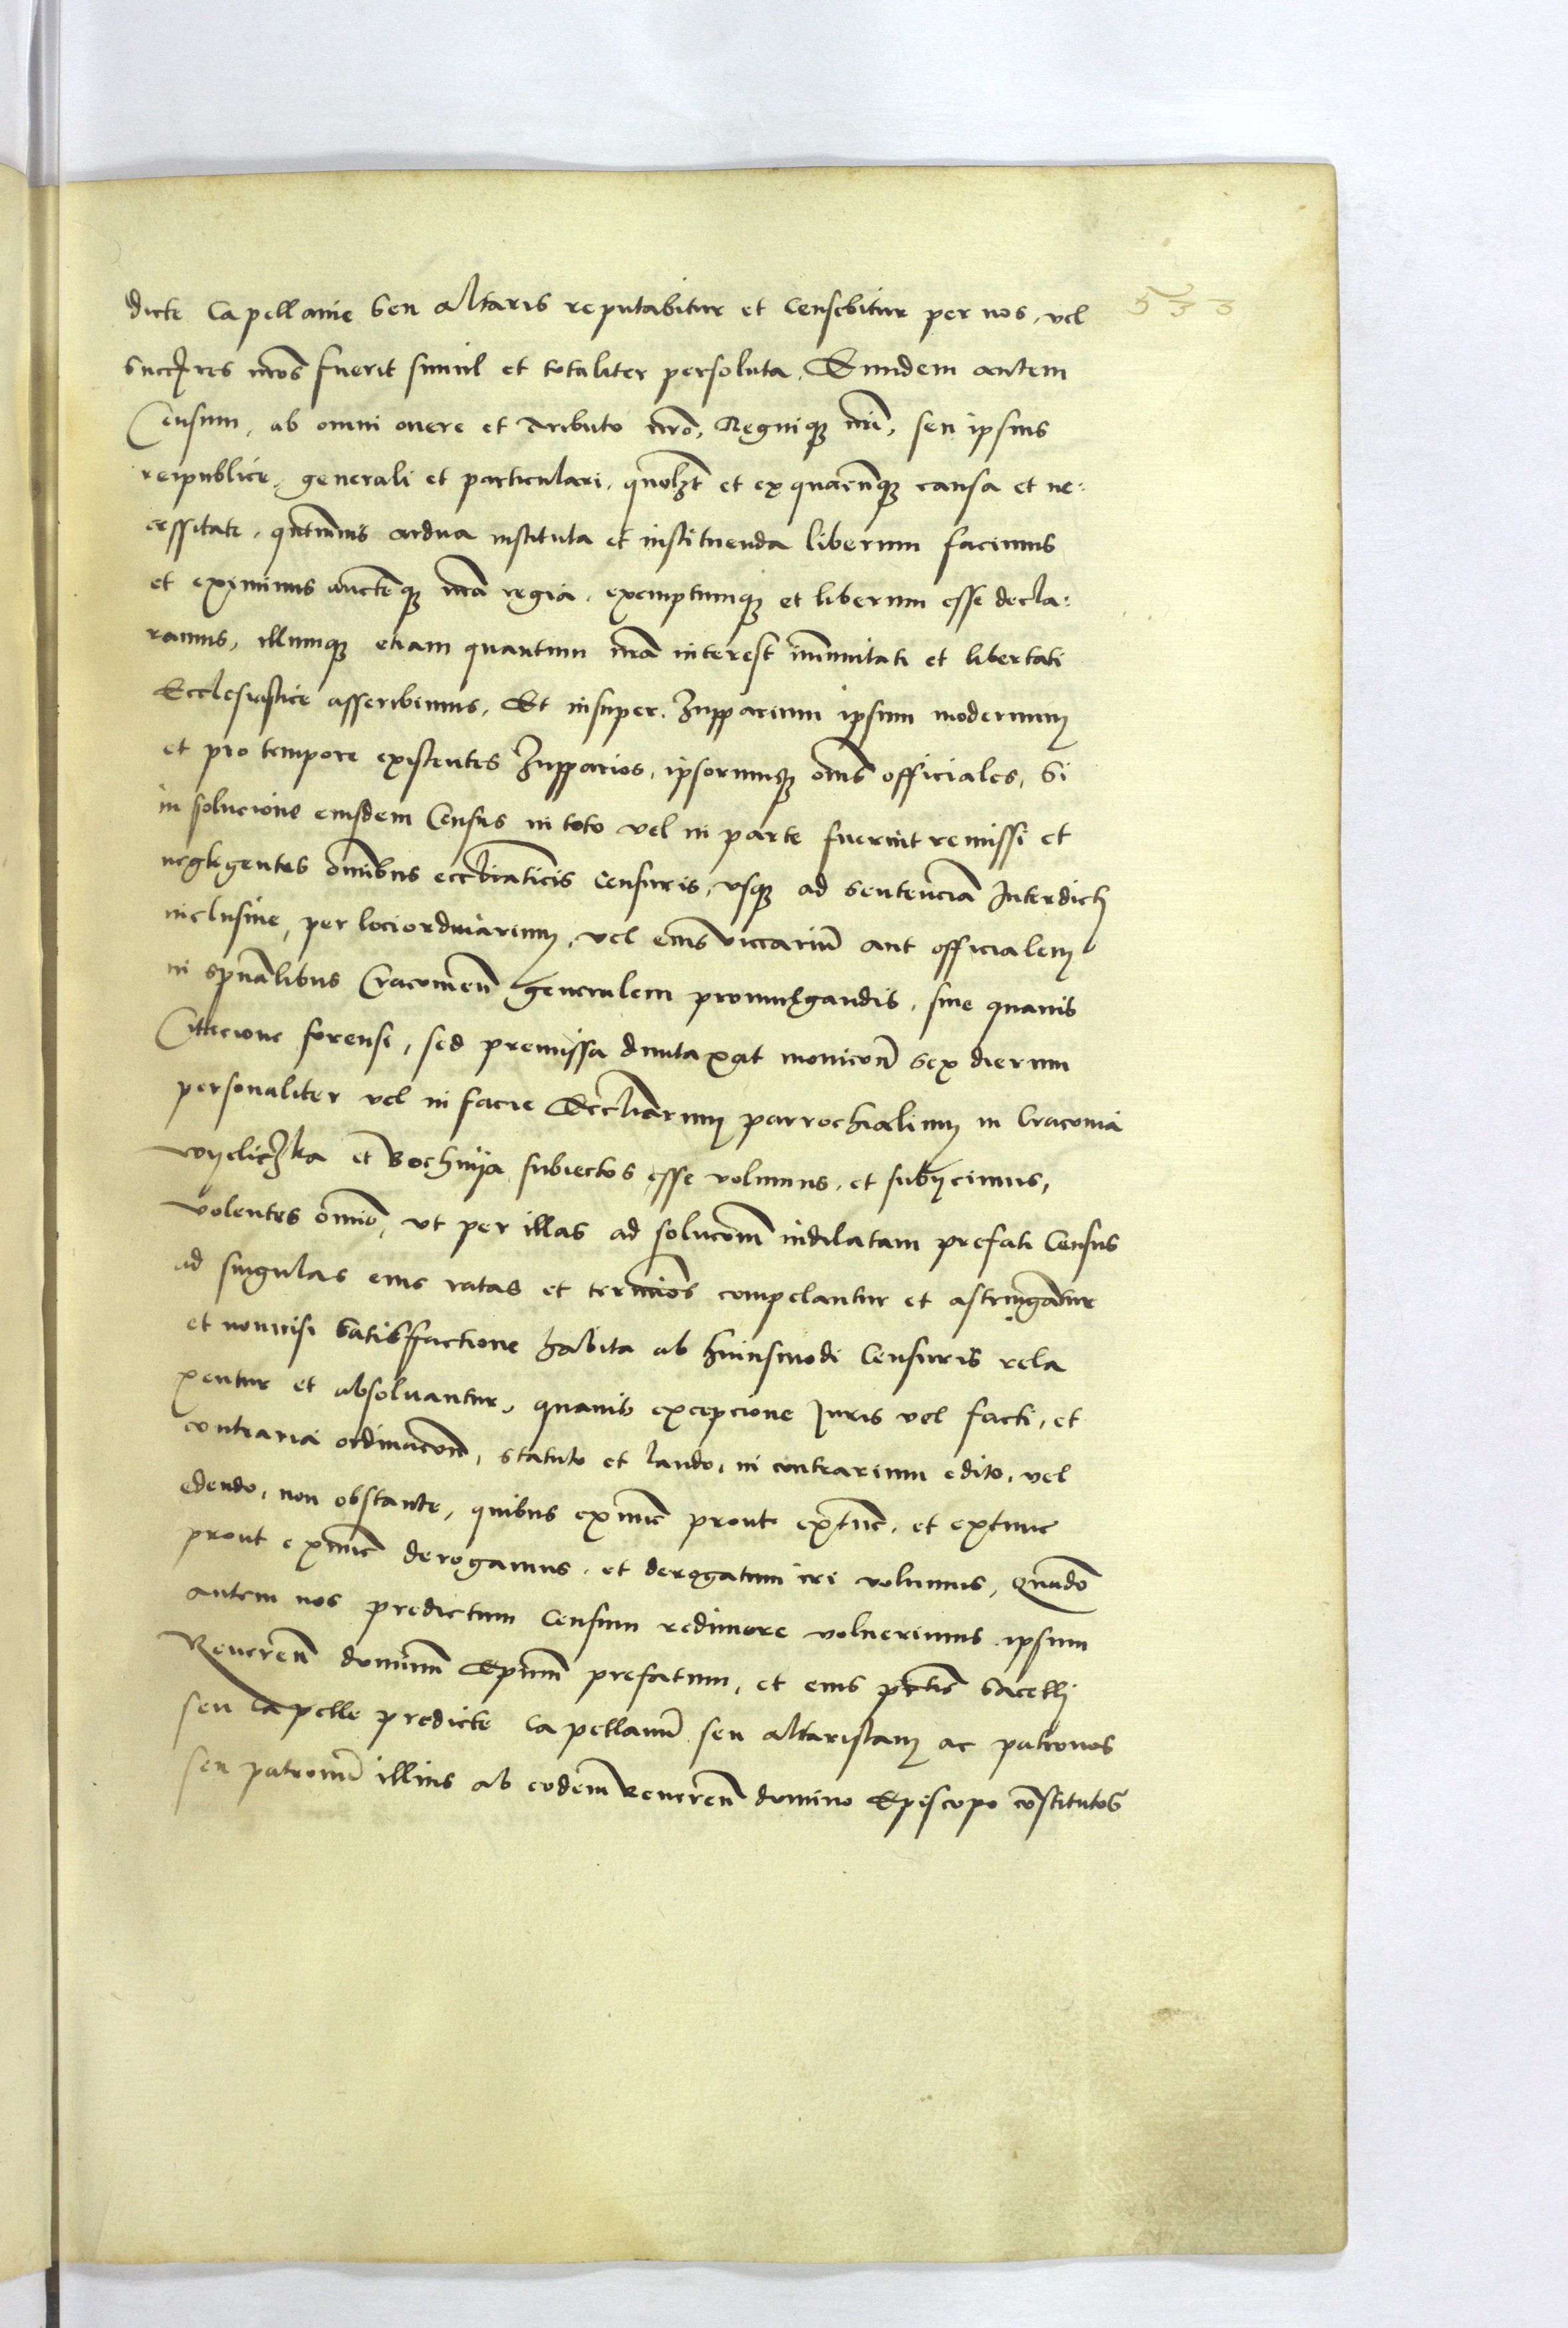 dicte Capellanie seu Altaris reputabitur et Censebitur per nos, vel 533
succẜres nr̃os fuerit simul et totaliter persoluta. Eundem autem
Censum, ab omni onere et Tributo nr̃o, Regniqꝫ nr̃i, seu ipsius
reipublice, generali et particulari, quolꝫt et ex quacũqꝫ causa et ne:
cessitate, qũtũuis ardua instituta et instituenda liberum facimus
et eximimus auctẽqꝫ nr̃a regia, exemptumqꝫ et liberum esse decla:
ramus, illumqꝫ etiam quantum nr̃a interest im̃unitati et libertati
Ecclesiastice asscribimus, Et insuper Zupparium ipsum modernum
et pro tempore existentes Zupparios, ipsorumqꝫ om̃s officiales, Si
in solucione eiusdem Census in toto vel in parte fuerint remissi et
neglegentes om̃ibus eccl̃iaticis Censuris, vsqꝫ ad sentenciã Interdicti
inclusiue, per lociordinarium, vel eius viccariũ aut officialem
in spũalibus Cracouieñ generalem promulgandis, sine quauis
Cittacione forensi, sed premissa duntaxat monicoñe sex dierum
personaliter vel in facie Eccl̃iarum parrochialium in Cracouia
wyeliczka et Bochnya subiectos esse volumus, et subycimus,
volentes om̃io, vt per illas ad solucoñem indilatam prefati Census
ad singulas eius ratas et termios compelantur et astringãtur
et nonnisi satisffactione habita ab huiusmodi Censuris rela
xentur et absoluantur, quauis excepcione Juris vel facti, et
contraria ordinacoñe, statuto et laudo, in contrarium edito, vel
edendo, non obstante, quibus exnũc prout extũc, et extunc
prout exnũc derogamus, et derogatum iri volumus, Quãdo
autem nos predictum Censum redimere voluerimus ipsum
Reuereñ dominum Ep̃um prefatum, et eius Sacelli
seu Capelle predicte Capellanũ seu altaristam ac patronos
seu patronũ illius ab eodem Reuereñ domino Episcopo cõstitutos